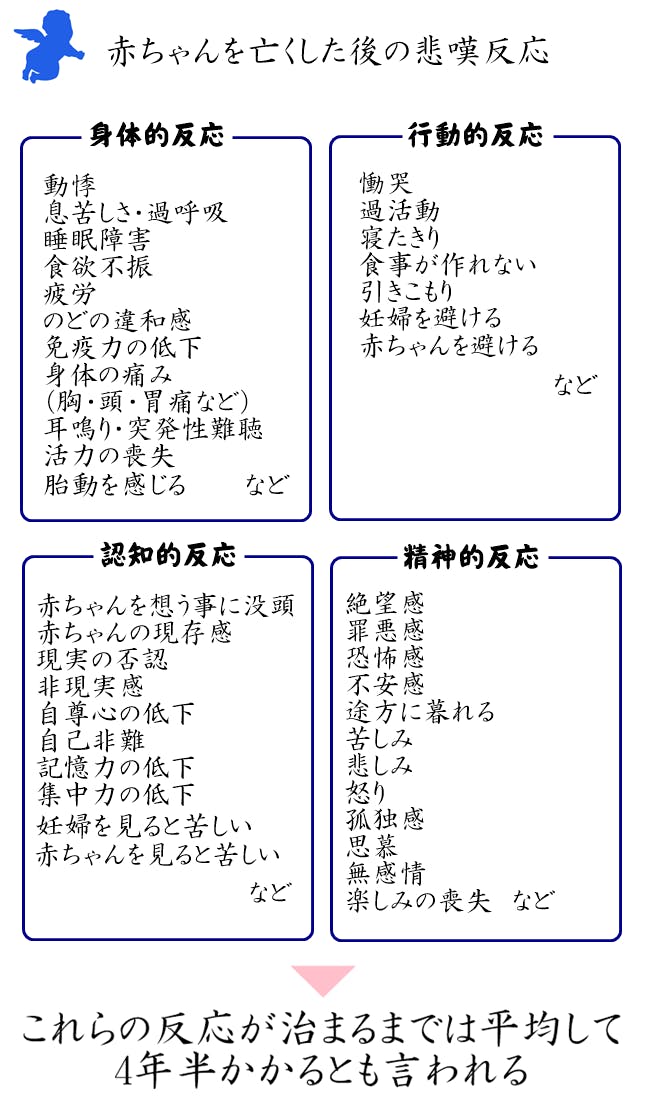 赤ちゃんを亡くした後の悲嘆反応
身体的反応
動悸
息苦しさ・過呼吸
睡眠障害
食欲不振
疲労
のどの違和感
免疫力の低下
身体の痛み
(胸・頭・胃痛など)
耳鳴り・突発性難聴
活力の喪失
胎動を感じる など
行動的反応
慟哭
過活動
寝たきり
食事が作れない
引きこもり
妊婦を避ける
赤ちゃんを避ける
など
認知的反応
赤ちゃんを想う事に没頭
赤ちゃんの現存感
現実の否認
非現実感
自尊心の低下
自己非難
記憶力の低下
集中力の低下
妊婦を見ると苦しい
赤ちゃんを見ると苦しい
など
精神的反応
絶望感
罪悪感
恐怖感
不安感
途方に暮れる
苦しみ
悲しみ
怒り
孤独感
思慕
無感情
楽しみの喪失 など
これらの反応が治まるまでは平均して
4年半かかるとも言われる